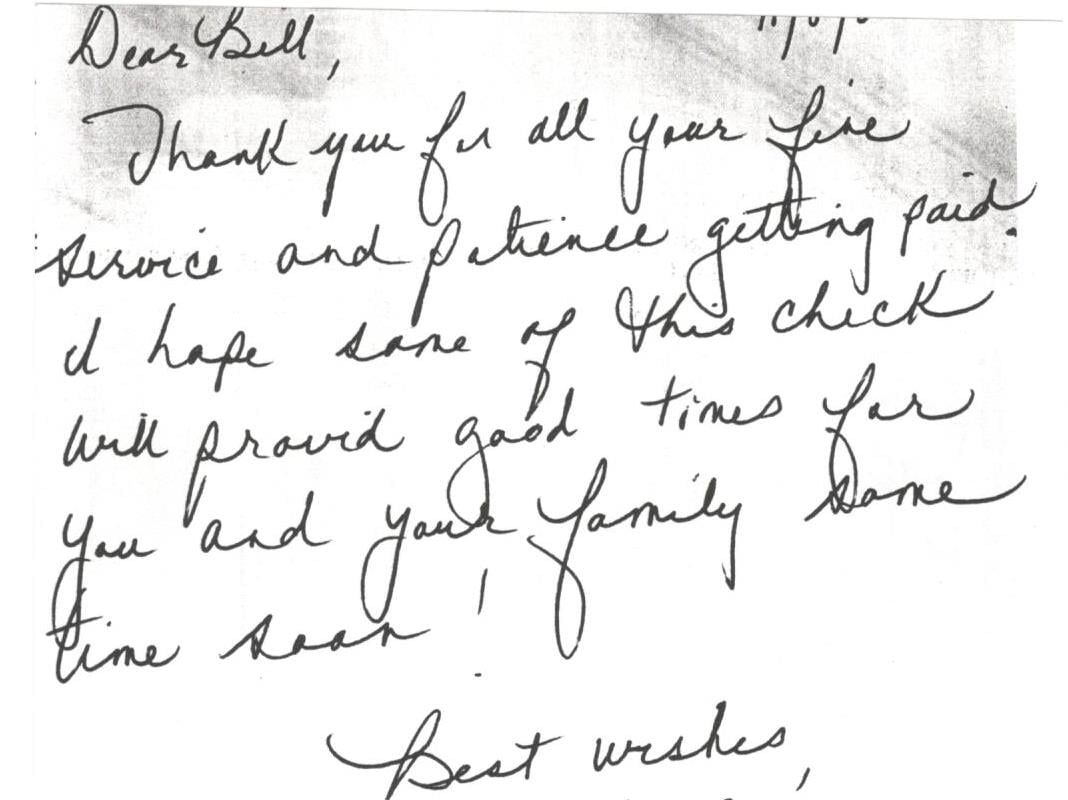 Dear Bill,
Thank you for all your fine
service and patience getting paid.
I hope some of this check
will provid good times for
you and your family some
time soon!
Best wishes,